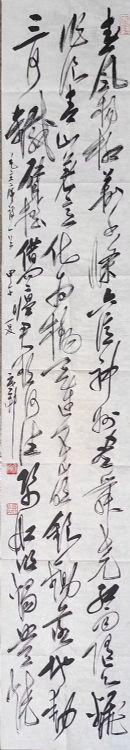 春风杨柳万千条六亿神州尽舜尧红雨随心翻
作浪青山着意化为桥天连五岭银锄落地动
三河铁臂摇借问瘟君欲何往纸船明烛照天烧
甲午夏